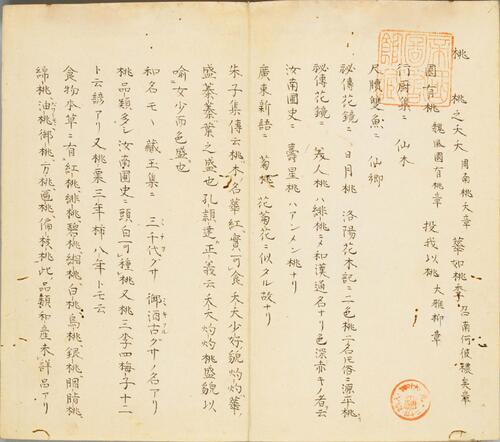 桃　桃之夭夭　周南桃夭章　華如桃李　召南何彼穠矣章
園有桃　魏風園有桃章　投我以桃　大雅抑章
行厨集ニ　仙木
尺牘雙魚ニ　仙郷
秘傳花鏡ニ　日月桃　洛陽花木記ニ二色桃ノ一名民俗ニ源平桃
秘傳花鏡ニ　美人桃ハ緋桃ニメ和漢通名ナリ色深赤キノ者ヲ云
汝南圃史ニ　壽星桃ハアンメン桃ナリ
廣東新語ニ　菊桃　花菊花ニ似タル故ナリ
朱子集傳云桃木ノ名華紅實可食夭夭少好貌灼灼華ノ
盛蓁蓁葉之盛也孔頴達正義云夭夭灼灼桃盛貌以
喻女少而色盛也
和名モヽ藏玉集ニ　三千代グサ　御酒古グサノ名アリ
桃品類多シ汝南圃史ニ頭白可種桃又桃三李四梅子十二
ト云諺アリ又桃栗三年柿八年トモ云
食物本草ニ有紅桃緋桃碧桃緗桃白桃烏桃銀桃胭脂桃
綿桃油桃御桃方桃匾桃偏核桃此品類和産未詳品アリ